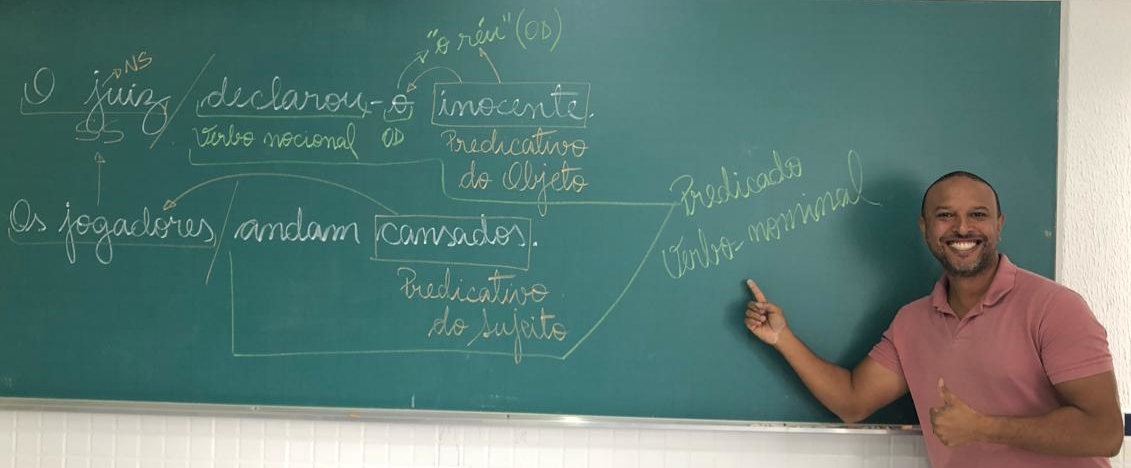 "o réu" (OD)
NS
O juiz / declarou-o inocente.
SS Verbo nocional OD Predicativo
do Objeto
Os jogadores / andam cansados.
Predicativo
do Sujeito
Predicado
Verbo-nominal